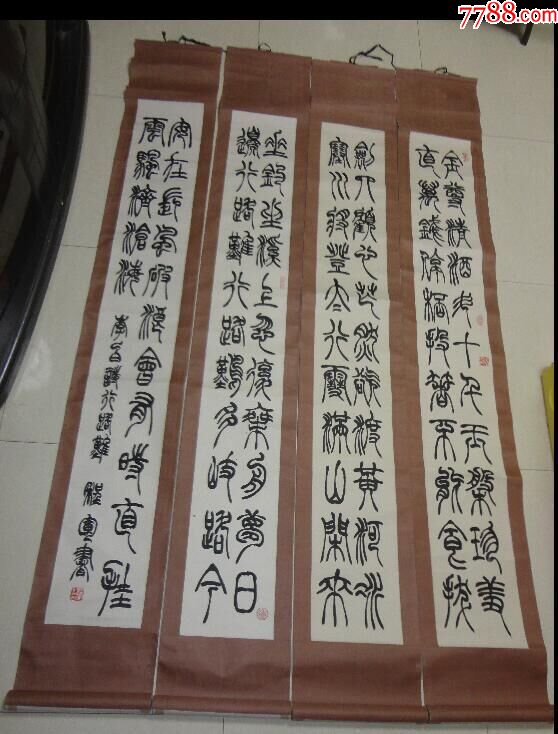 7788.com
金尊清酒斗十千玉盤珍羞
直萬錢停杯投箸不能食拔
劍四顧心茫然欲渡黃河冰
塞川將登太行雪滿山閑來
垂釣坐溪上忽復乘舟夢日
邊行路難行路難多岐路今
安在長風破浪會有時直挂
雲颿濟滄海
李白詩行路難 書